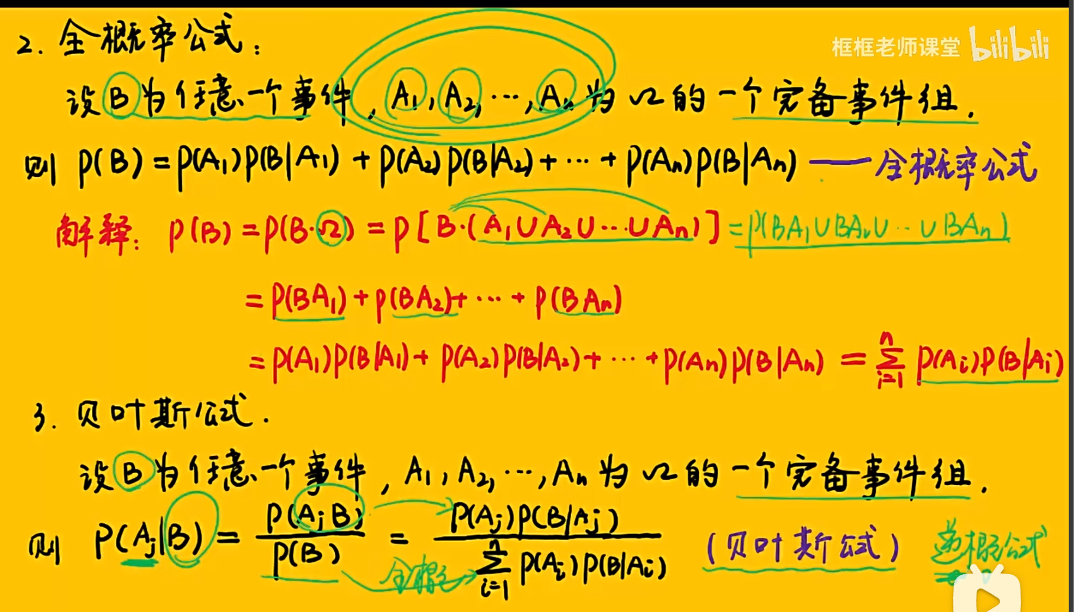 2. 全概率公式：
框框老师课堂 bilibili
设B为任意一个事件, A₁, A₂, ⋯, Aₙ为Ω的一个完备事件组.
则 P(B) = P(A₁)P(B|A₁) + P(A₂)P(B|A₂) + ⋯ + P(Aₙ)P(B|Aₙ) —— 全概率公式
解释: P(B) = P(B·Ω) = P[B·(A₁∪A₂∪⋯∪Aₙ)] = P(BA₁∪BA₂∪⋯∪BAₙ)
= P(BA₁) + P(BA₂) + ⋯ + P(BAₙ)
= P(A₁)P(B|A₁) + P(A₂)P(B|A₂) + ⋯ + P(Aₙ)P(B|Aₙ) = ∑ⁿᵢ₌₁ P(Aᵢ)P(B|Aᵢ)
3. 贝叶斯公式.
设B为任意一个事件, A₁, A₂, ⋯, Aₙ为Ω的一个完备事件组.
则 P(Aⱼ|B) = P(AⱼB) / P(B) = P(Aⱼ)P(B|Aⱼ) / ∑ⁿᵢ₌₁ P(Aᵢ)P(B|Aᵢ) (贝叶斯公式) 逆概公式
全概